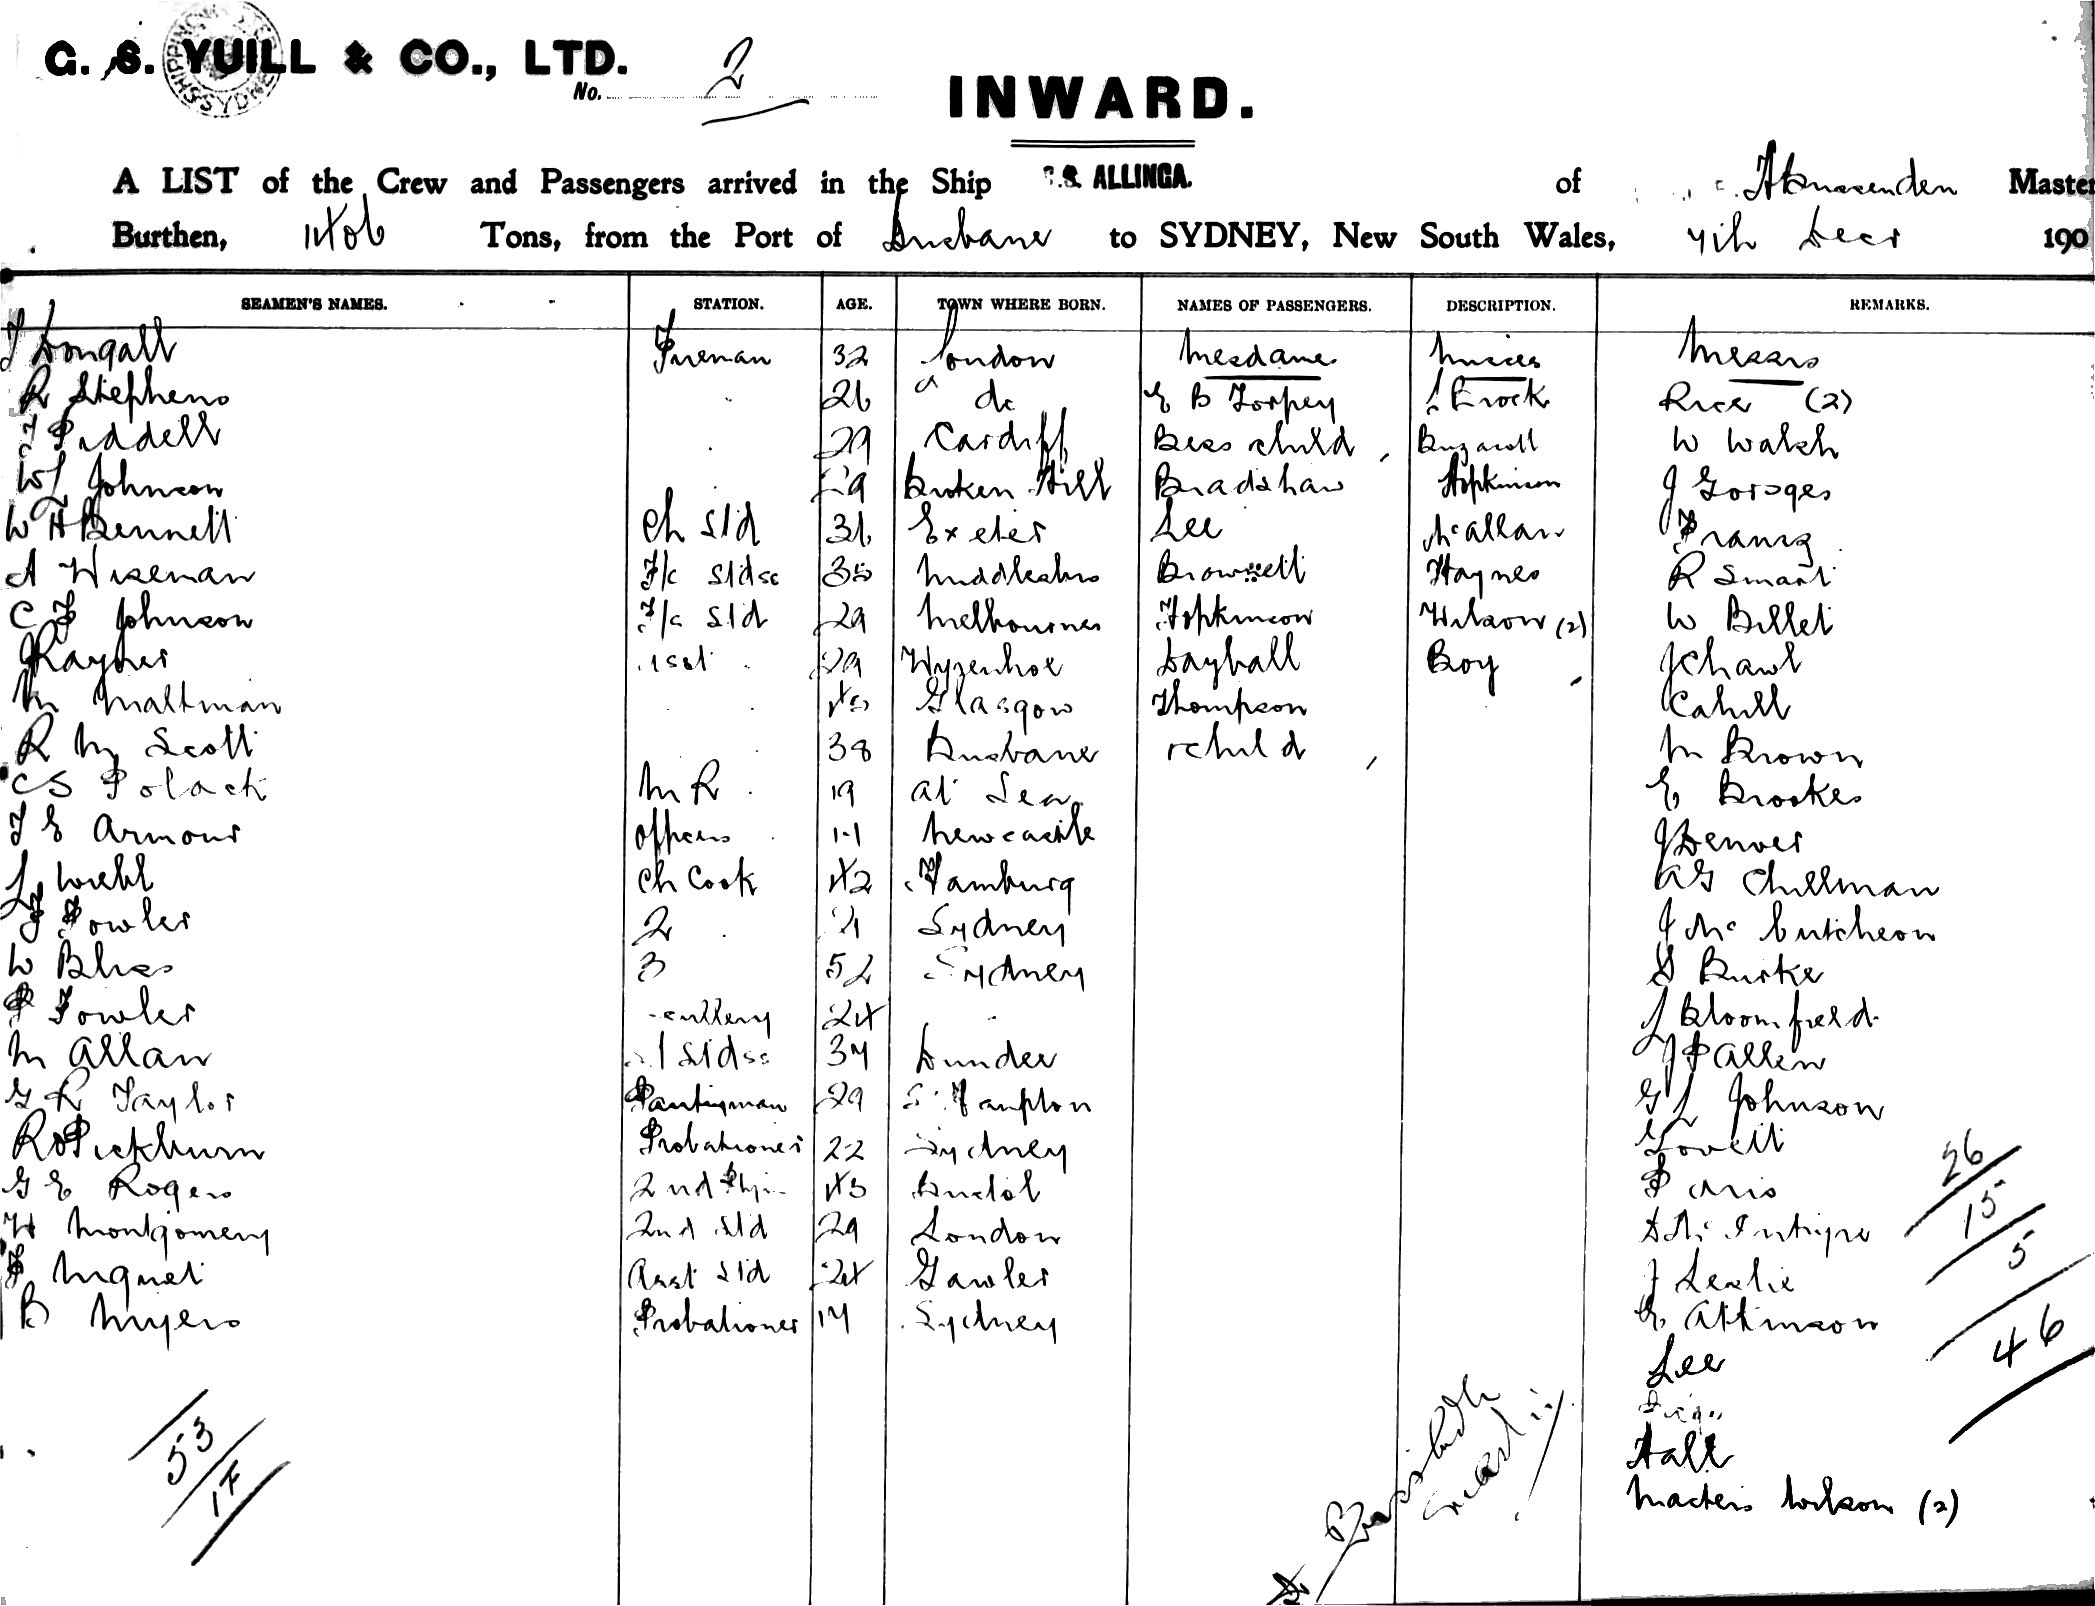 G. S. YUILL & CO., LTD.
No. 2
INWARD.
A LIST of the Crew and Passengers arrived in the Ship S.S. ALLINGA. of Master
Burthen, Tons, from the Port of Brisbane to SYDNEY, New South Wales, 7th Decr 190
SEAMEN'S NAMES. STATION. AGE. TOWN WHERE BORN. NAMES OF PASSENGERS. DESCRIPTION. REMARKS.
J Dongall Fireman 32 London Mesdames Misses Messrs
R Stephens 26 do E B Torpey Brock Rice (2)
J Piddell 29 Cardiff Bess child W Walsh
W Johnson 29 Broken Hill Bradshaw Hopkinson J Gorsges
W H Bennell Ch Std 36 Exeter Lee McAllan Franz
A Wiseman F/c Stdss 35 Middlesbro Brownell Haynes R Smart
C F Johnson F/c Std 29 Melbourne Hopkinson Wilson (2) W Billet
Rayner asst 29 Wyvenhoe Dayball Boy J Chawl
M Maltman 45 Glasgow Thompson Cahill
R M Scott 38 Brisbane & child M Brown
C S Polack M R 19 at Sea E Brookes
J E Armour Officers Newcastle J Denver
L Wiehl Ch Cook 42 Hamburg A G Chillman
J Fowler 2 21 Sydney J McCutcheon
W Bliss 3 52 Sydney Burke
P Fowler scullery 24 L Bloomfield
M Allan Stdss 37 Dundee J P Allen
G R Taylor Pantryman 29 S'Hampton G L Johnson
R Pickburn Probationer 22 Sydney Lovell
G E Rogers 2nd 43 Bristol Paris
H Montgomery 2nd Std 29 London McIntyre
F Miguel Asst Std 24 Gawler J Leslie
B Myers Probationer 17 Sydney Attkinson
Lee
Hall
Masters Wilson (2)
26
15
5
46
53
17